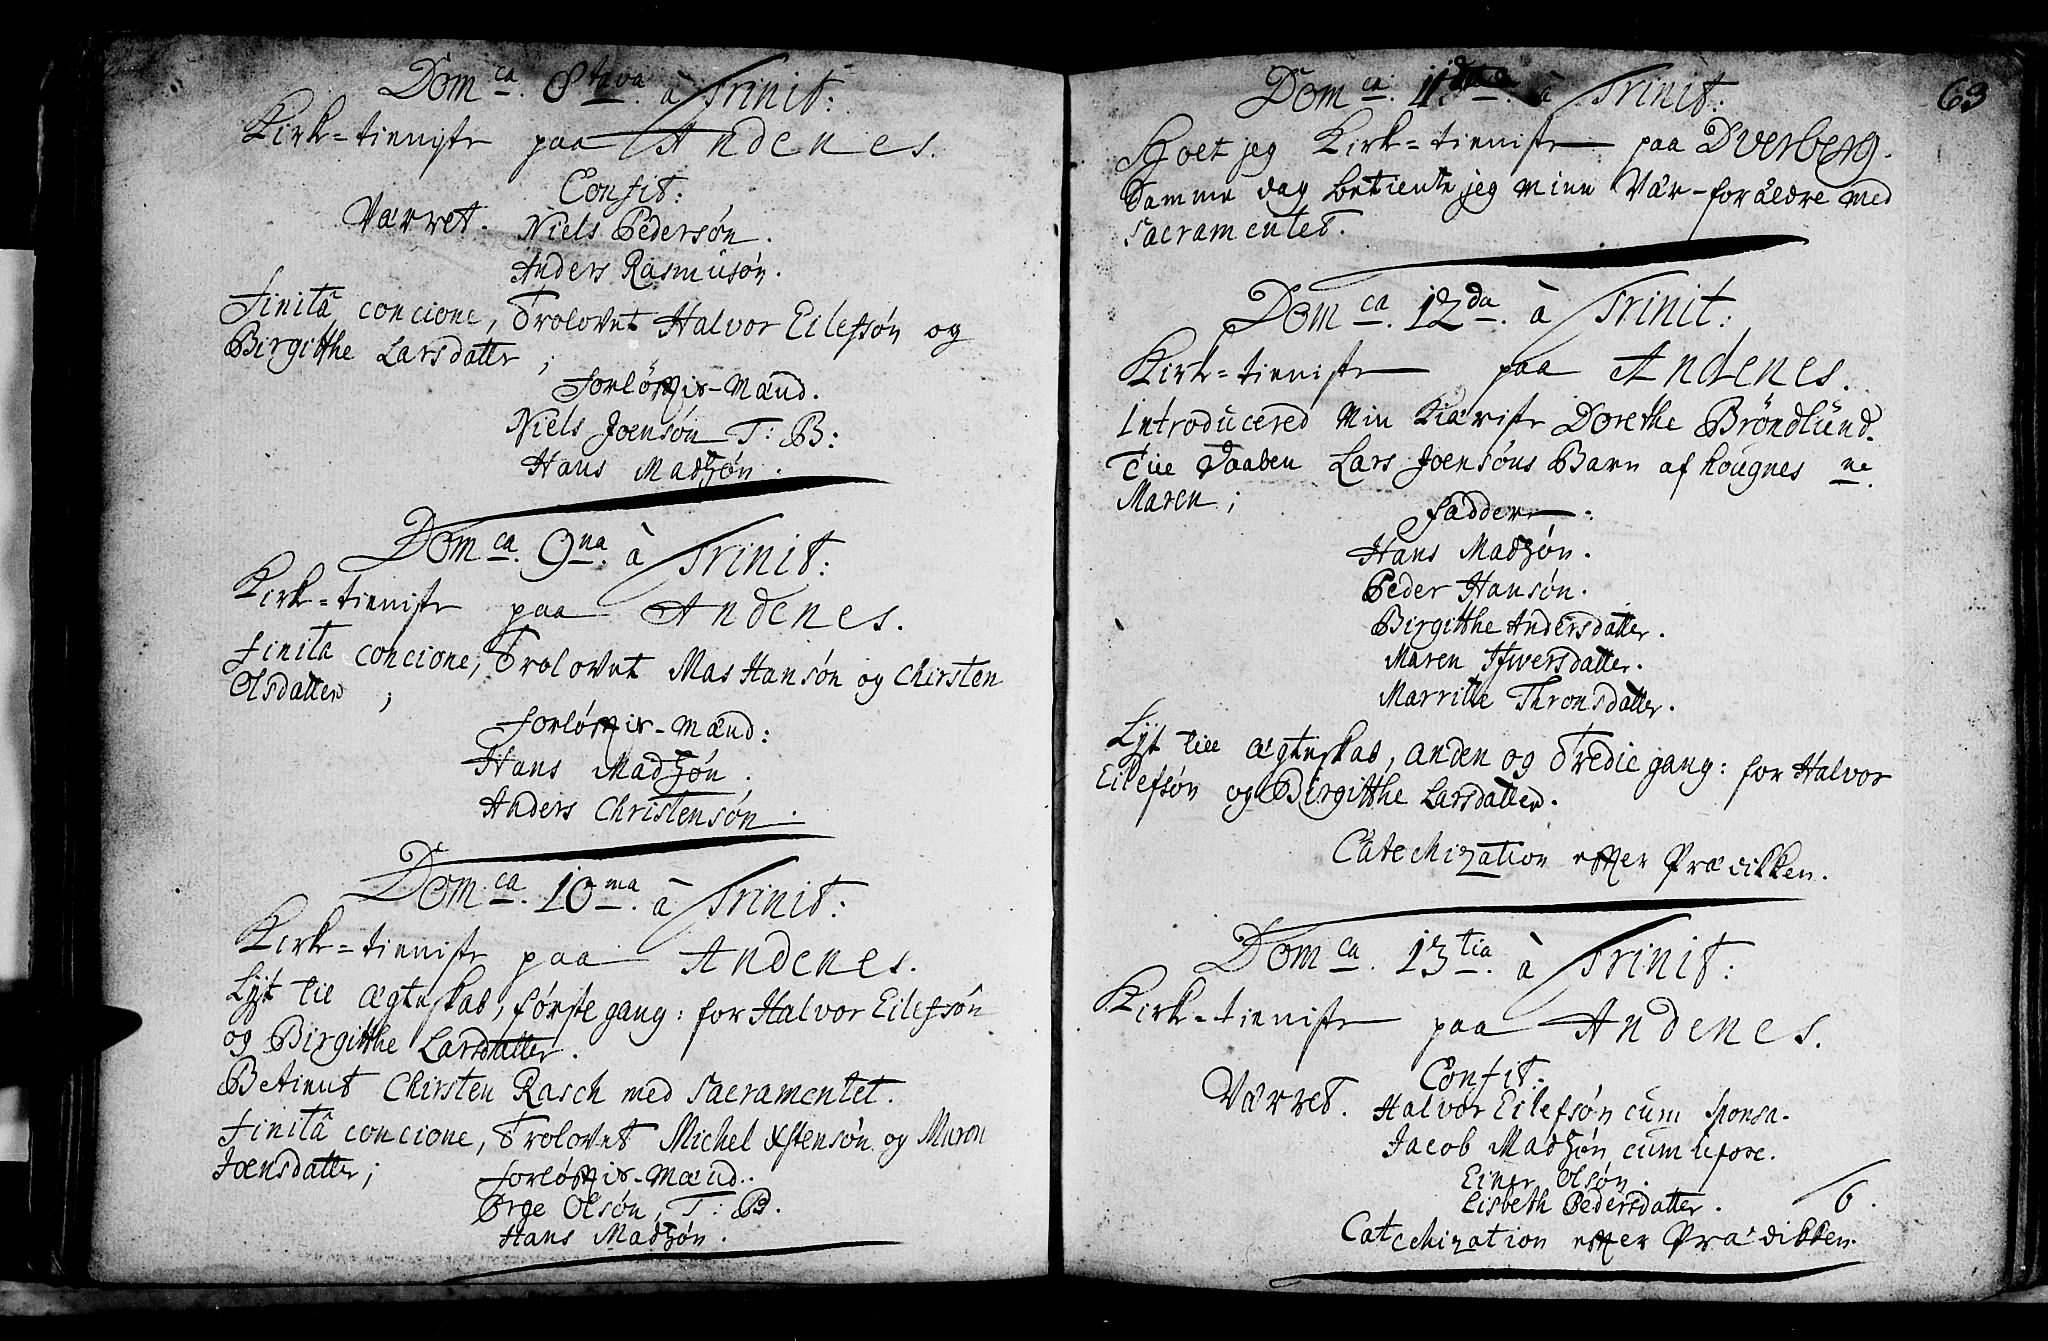 Dom ca. 8tava. à Trinit:
Kirk=tieniste paa Andenes.
Confit:
Værret. Niels Pedersøn.
Anders Rasmusøn.
Finitâ concione, Trolovet Halvor Eilefsøn og
Birgitthe Larsdatter;
Forløffnis-Mænd.
Niels Joensøn T: B:
Hans Madtzøn.
Dom ca. 9na. à Trinit:
Kirk=tieniste paa Andenes.
Finita concione, Trolovet Mas Hansøn og Chirsten
Olsdatter;
Forløffnis-Mænd:
Hans Madtzøn.
Anders Christensøn.
Dom ca. 10ma. à Trinit:
Kirk=tieniste paa Andenes.
Lyst till ægteskab, første gang: for Halvor Eilefsøn
og Birgitthe Larsdatter.
Betient Chirsten Rasch med Sacramentet.
Finitâ concione, Trolovet Michel Xstensøn og Maren
Joensdatter;
Forløffnis-Mænd.
Ørge Olsøn, T: B.
Hans Madtzøn.
63
Dom ca. 11 à Trinit:
jeg Kirk=tieniste paa Dverberg.
Samme dag betiente jeg minne Vær-forældre med
Sacramentet.
Dom ca. 12da. à Trinit:
Kirk=tieniste paa Andenes.
Introducered Min Kiæriste Dorethe Brøndlund.
Till Daaben Lars Joensøns Barn af Kougnes ne.
Maren;
Fadder:
Hans Madtzøn.
Peder Hansøn.
Birgitthe Andersdatter.
Maren Ifwersdatter.
Marritte Thronsdatter.
Lyst till ægteskab, anden og Tredie gang: for Halvor
Eilefsøn og Birgitthe Larsdatter.
Catechization effter Prædikken.
Dom ca. 13tia. à Trinit:
Kirk=tieniste paa Andenes.
Confit:
Værret. Halvor Eilefsøn cum sponsa.
Jacob Madtzøn cum uxore.
Einer Olsøn.
Lisbeth Pedersdatter. /6.
Catechization effter Prædikken.